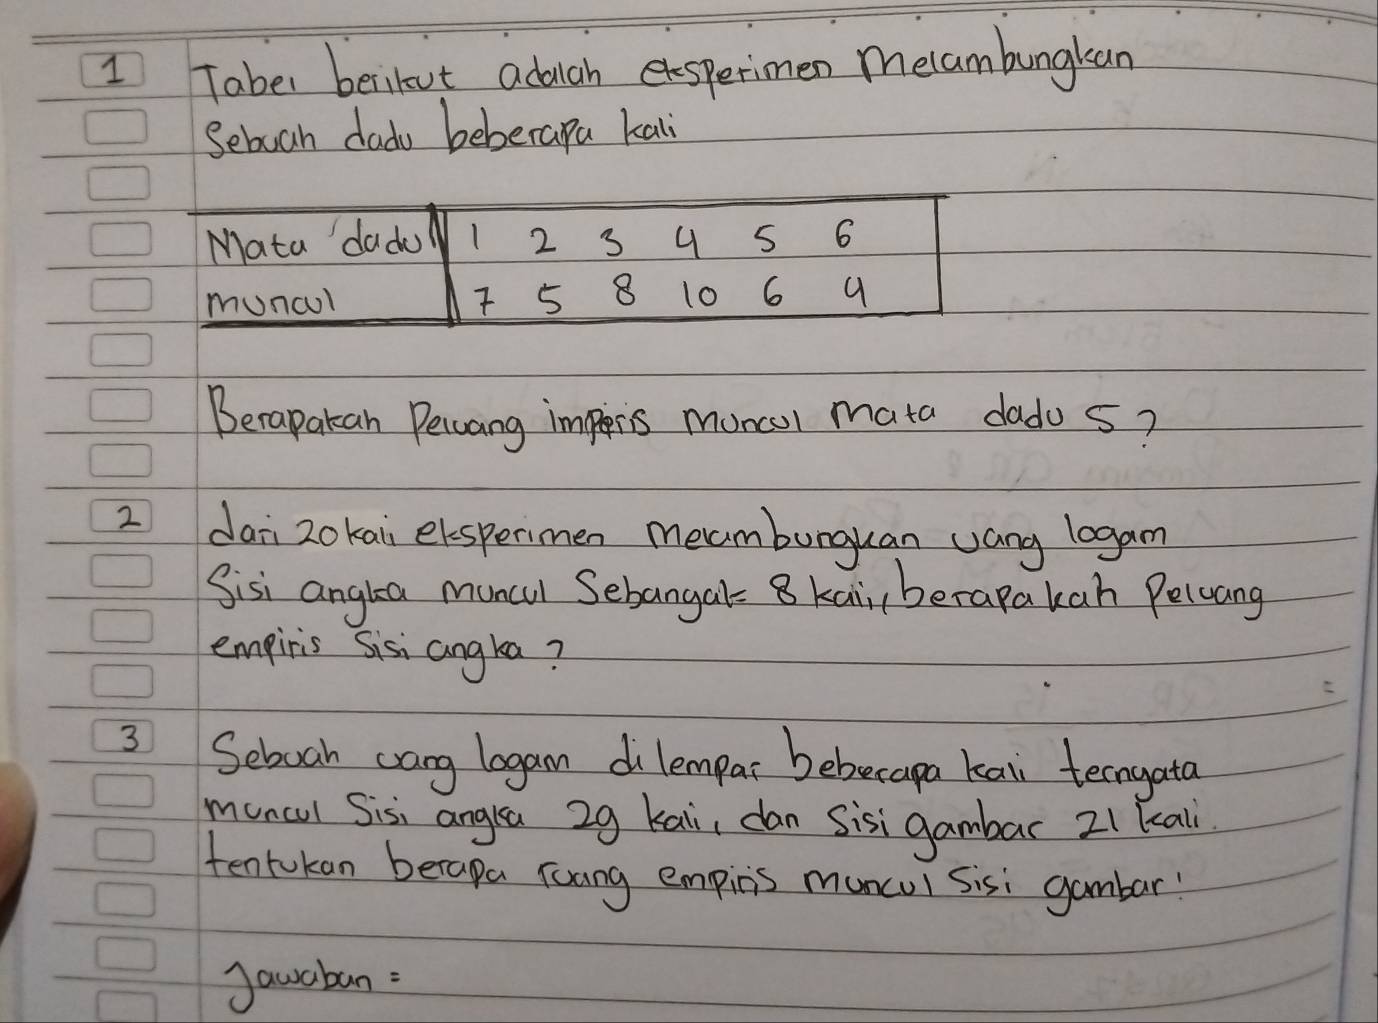 1 Tabel berikut adalah eksperimen Melambungkan
Sebuah dadu beberapa kali
Mata dadu 1 2 3 4 5 6
muncul 7 5 8 10 6 4
Berapakah Peluang impiris muncul mata dadu 5?
2 dari 20 kali eksperimen melambungkan uang logam
Sisi angka muncul Sebanyak 8 kali, berapakah Peluang
empiris Sisi angka?
3 Sebuah uang logam dilempar beberapa kali ternyata
muncul Sisi angka 29 kali, dan Sisi gambar 21 kali.
tentukan berapa ruang empiris muncul Sisi gambar!
Jawaban =